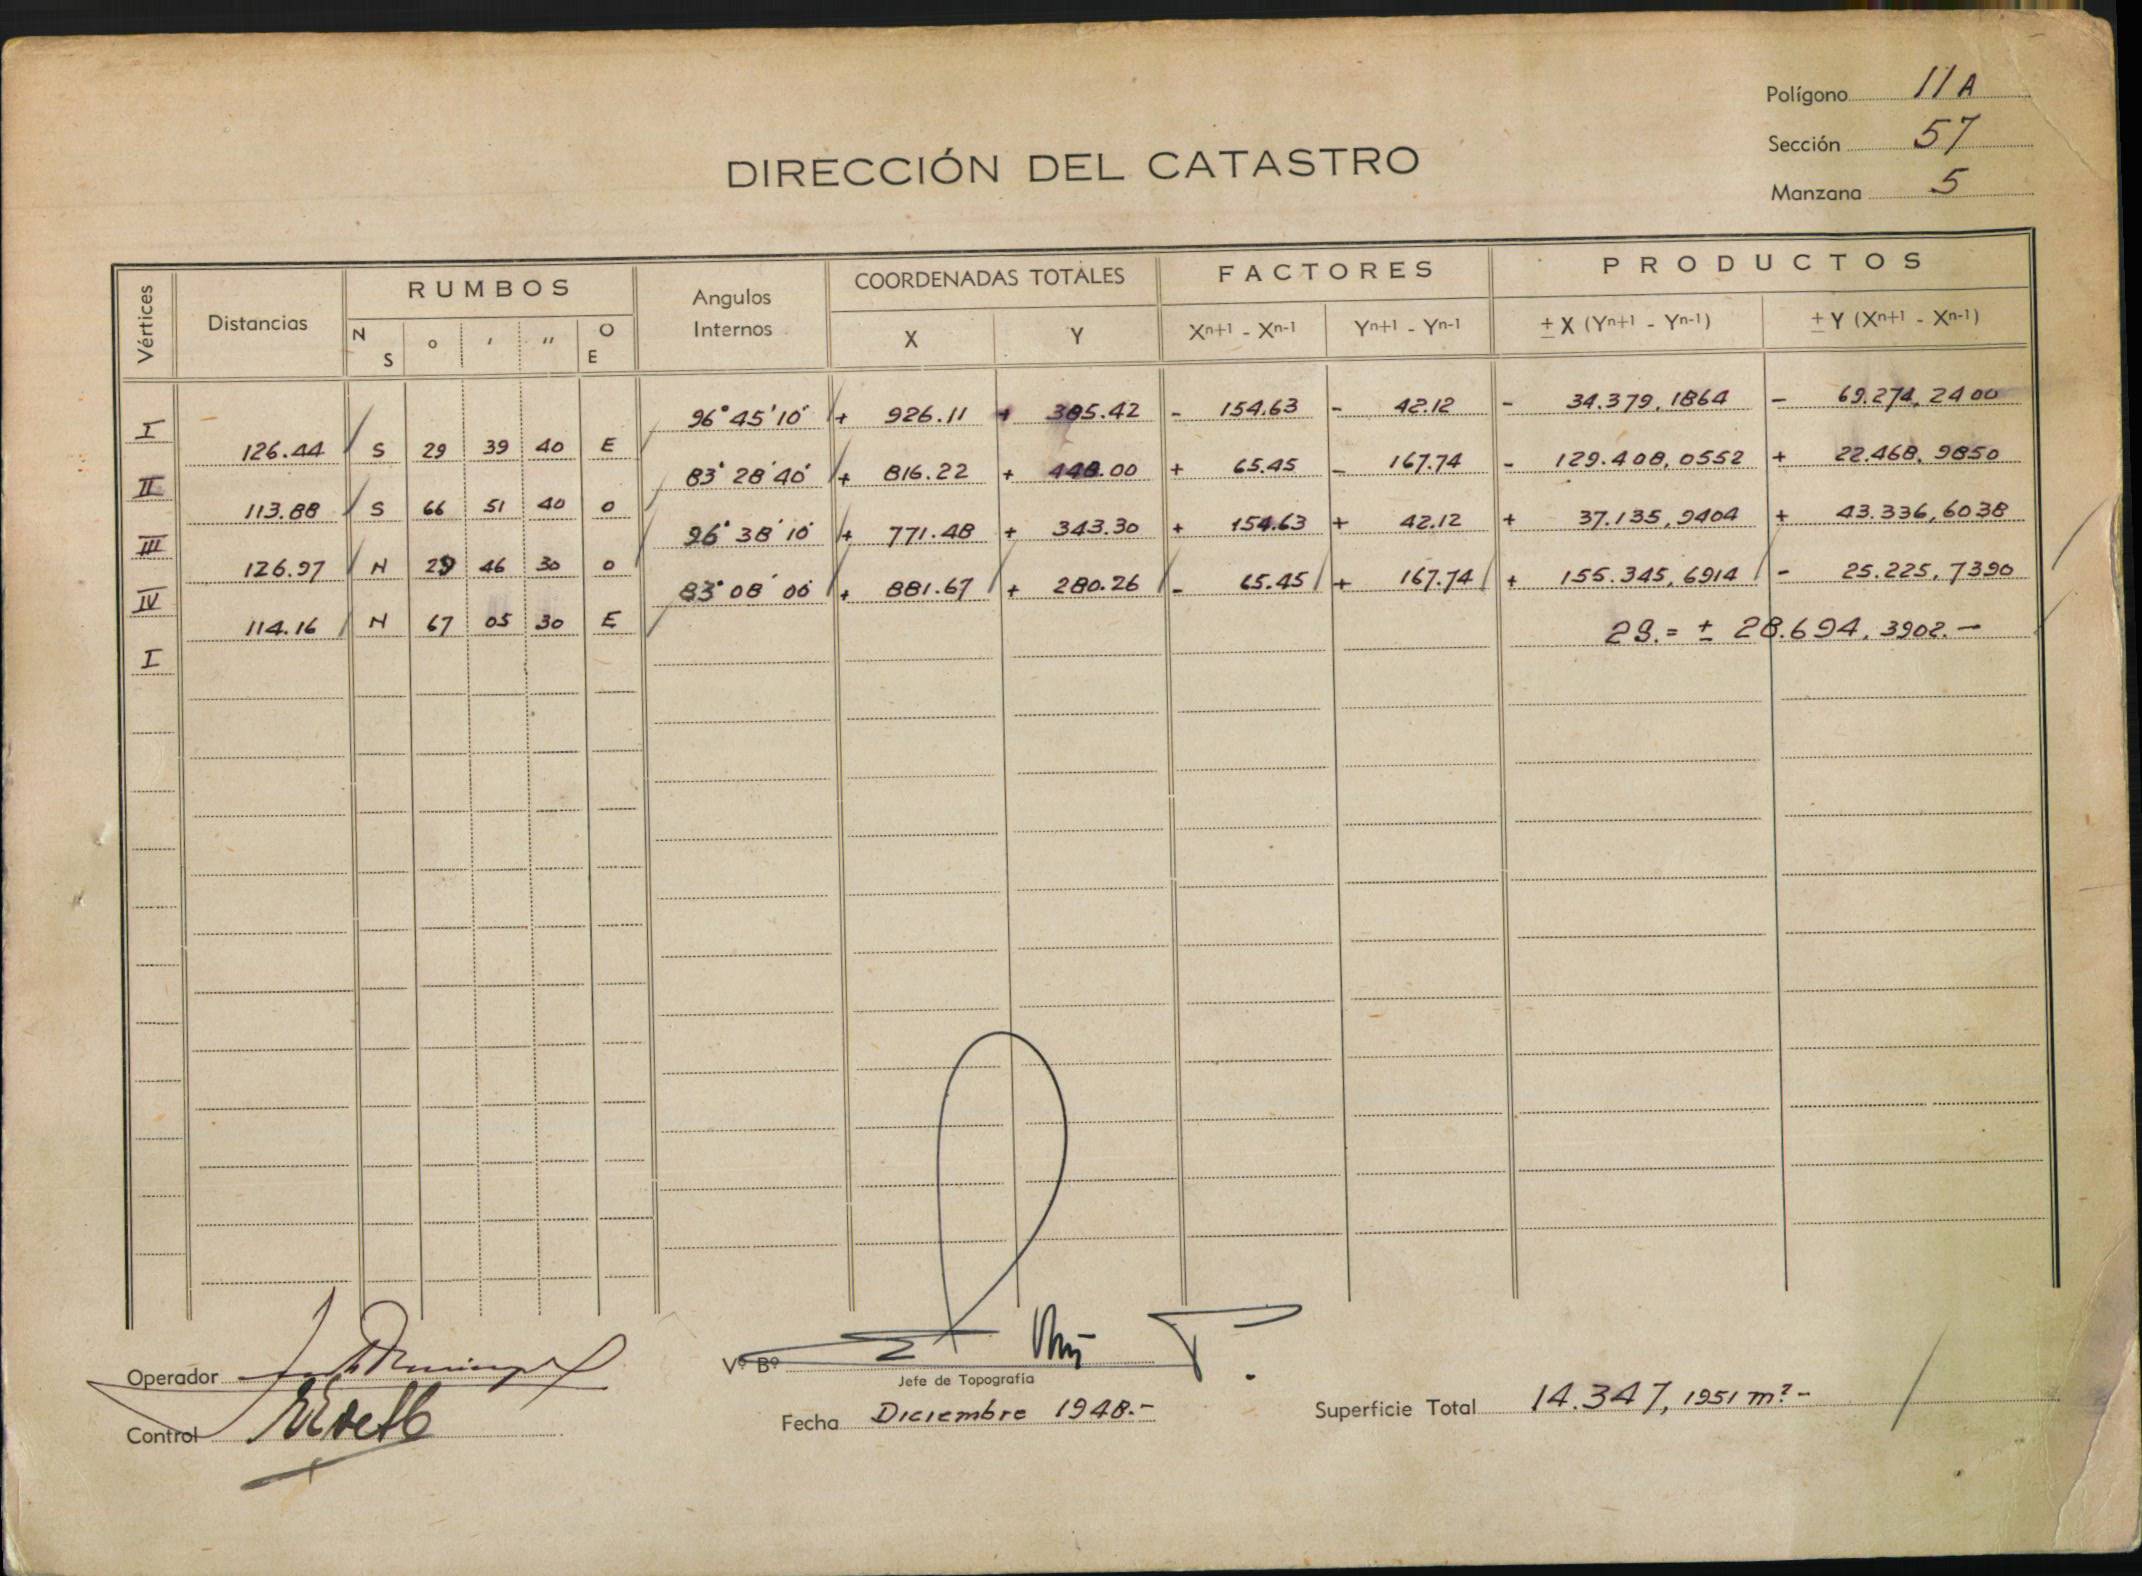 Polígono 11 A
Sección 57
Manzana 5
DIRECCIÓN DEL CATASTRO
Vértices Distancias RUMBOS Angulos Internos COORDENADAS TOTALES FACTORES PRODUCTOS
N S ° ' " O E X Y Xⁿ⁺¹ - Xⁿ⁻¹ Yⁿ⁺¹ - Yⁿ⁻¹ ± X (Yⁿ⁺¹ - Yⁿ⁻¹) ± Y (Xⁿ⁺¹ - Xⁿ⁻¹)
I 96° 45' 10" + 926.11 + 385.42 - 154.63 - 42.12 - 34.379,1864 - 69.274,2400
126.44 S 29 39 40 E
II 83° 28' 40" + 816.22 + 448.00 + 65.45 - 167.74 - 129.408,0552 + 22.468,9850
113.88 S 66 51 40 O
III 96° 38' 10" + 771.48 + 343.30 + 154.63 + 42.12 + 37.135,9404 + 43.336,6038
126.97 N 29 46 30 O
IV 83° 08' 00" + 881.67 + 280.26 - 65.45 + 167.74 + 155.345,6914 - 25.225,7390
114.16 N 67 05 30 E
2S.= ± 28.694,3902.-
I
Operador
Vº Bº
Jefe de Topografía
Control
Fecha Diciembre 1948.-
Superficie Total 14.347,1951 m².-